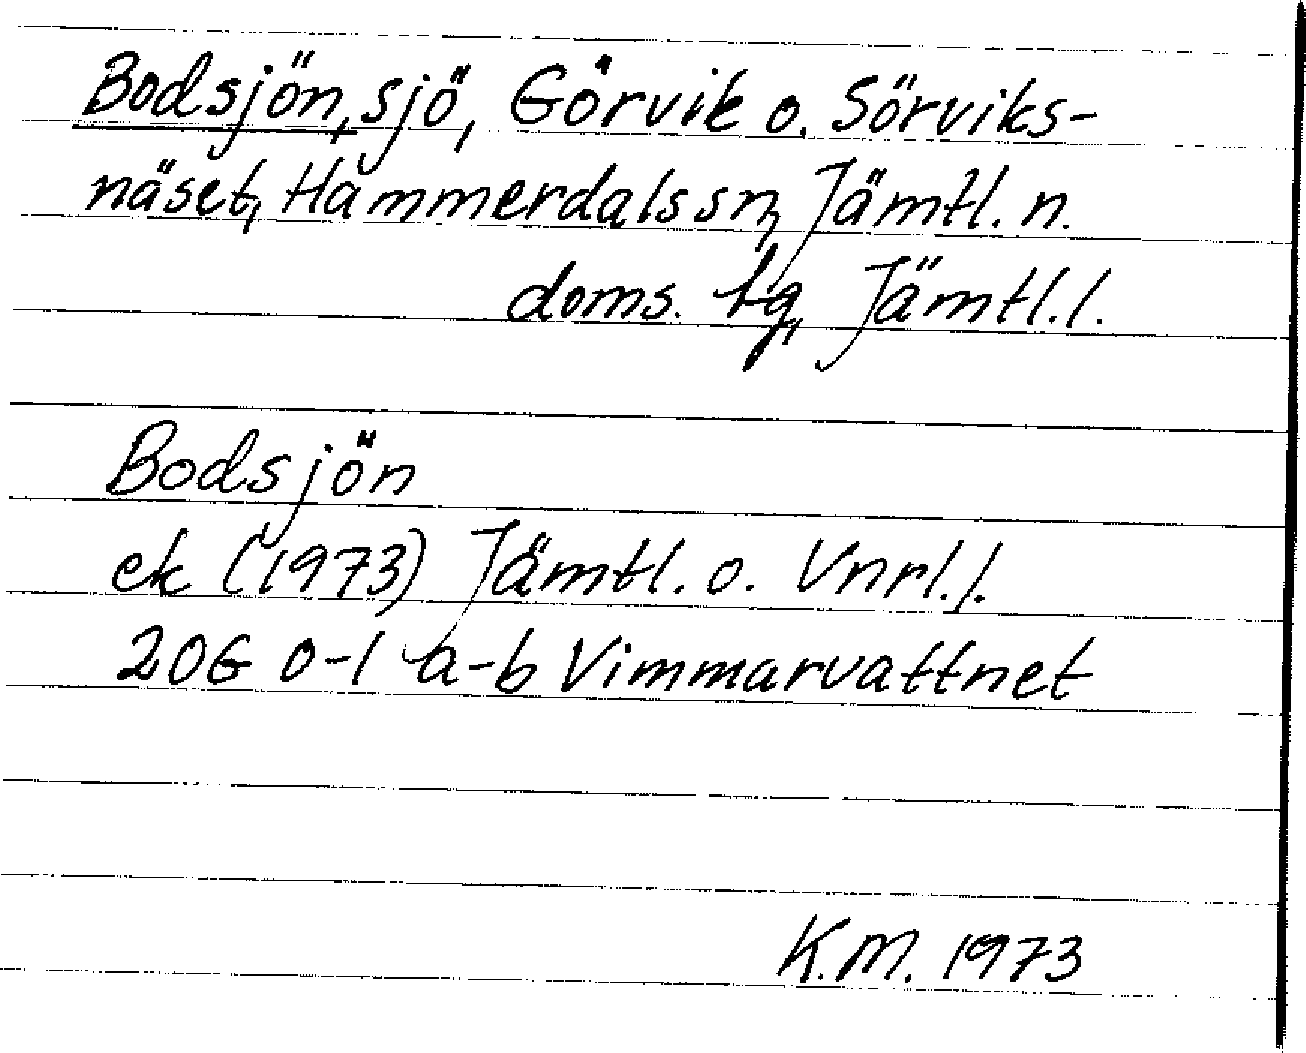 Bodsjön, sjö, Görvik o. Sörviks-
näset, Hammerdals sn, Jämtl. n.
doms. tg, Jämtl. l.
Bodsjön
ek (1973) Jämtl. o. Vnrl. l.
20G 0-1 a-b Vimmarvattnet
K.M. 1973